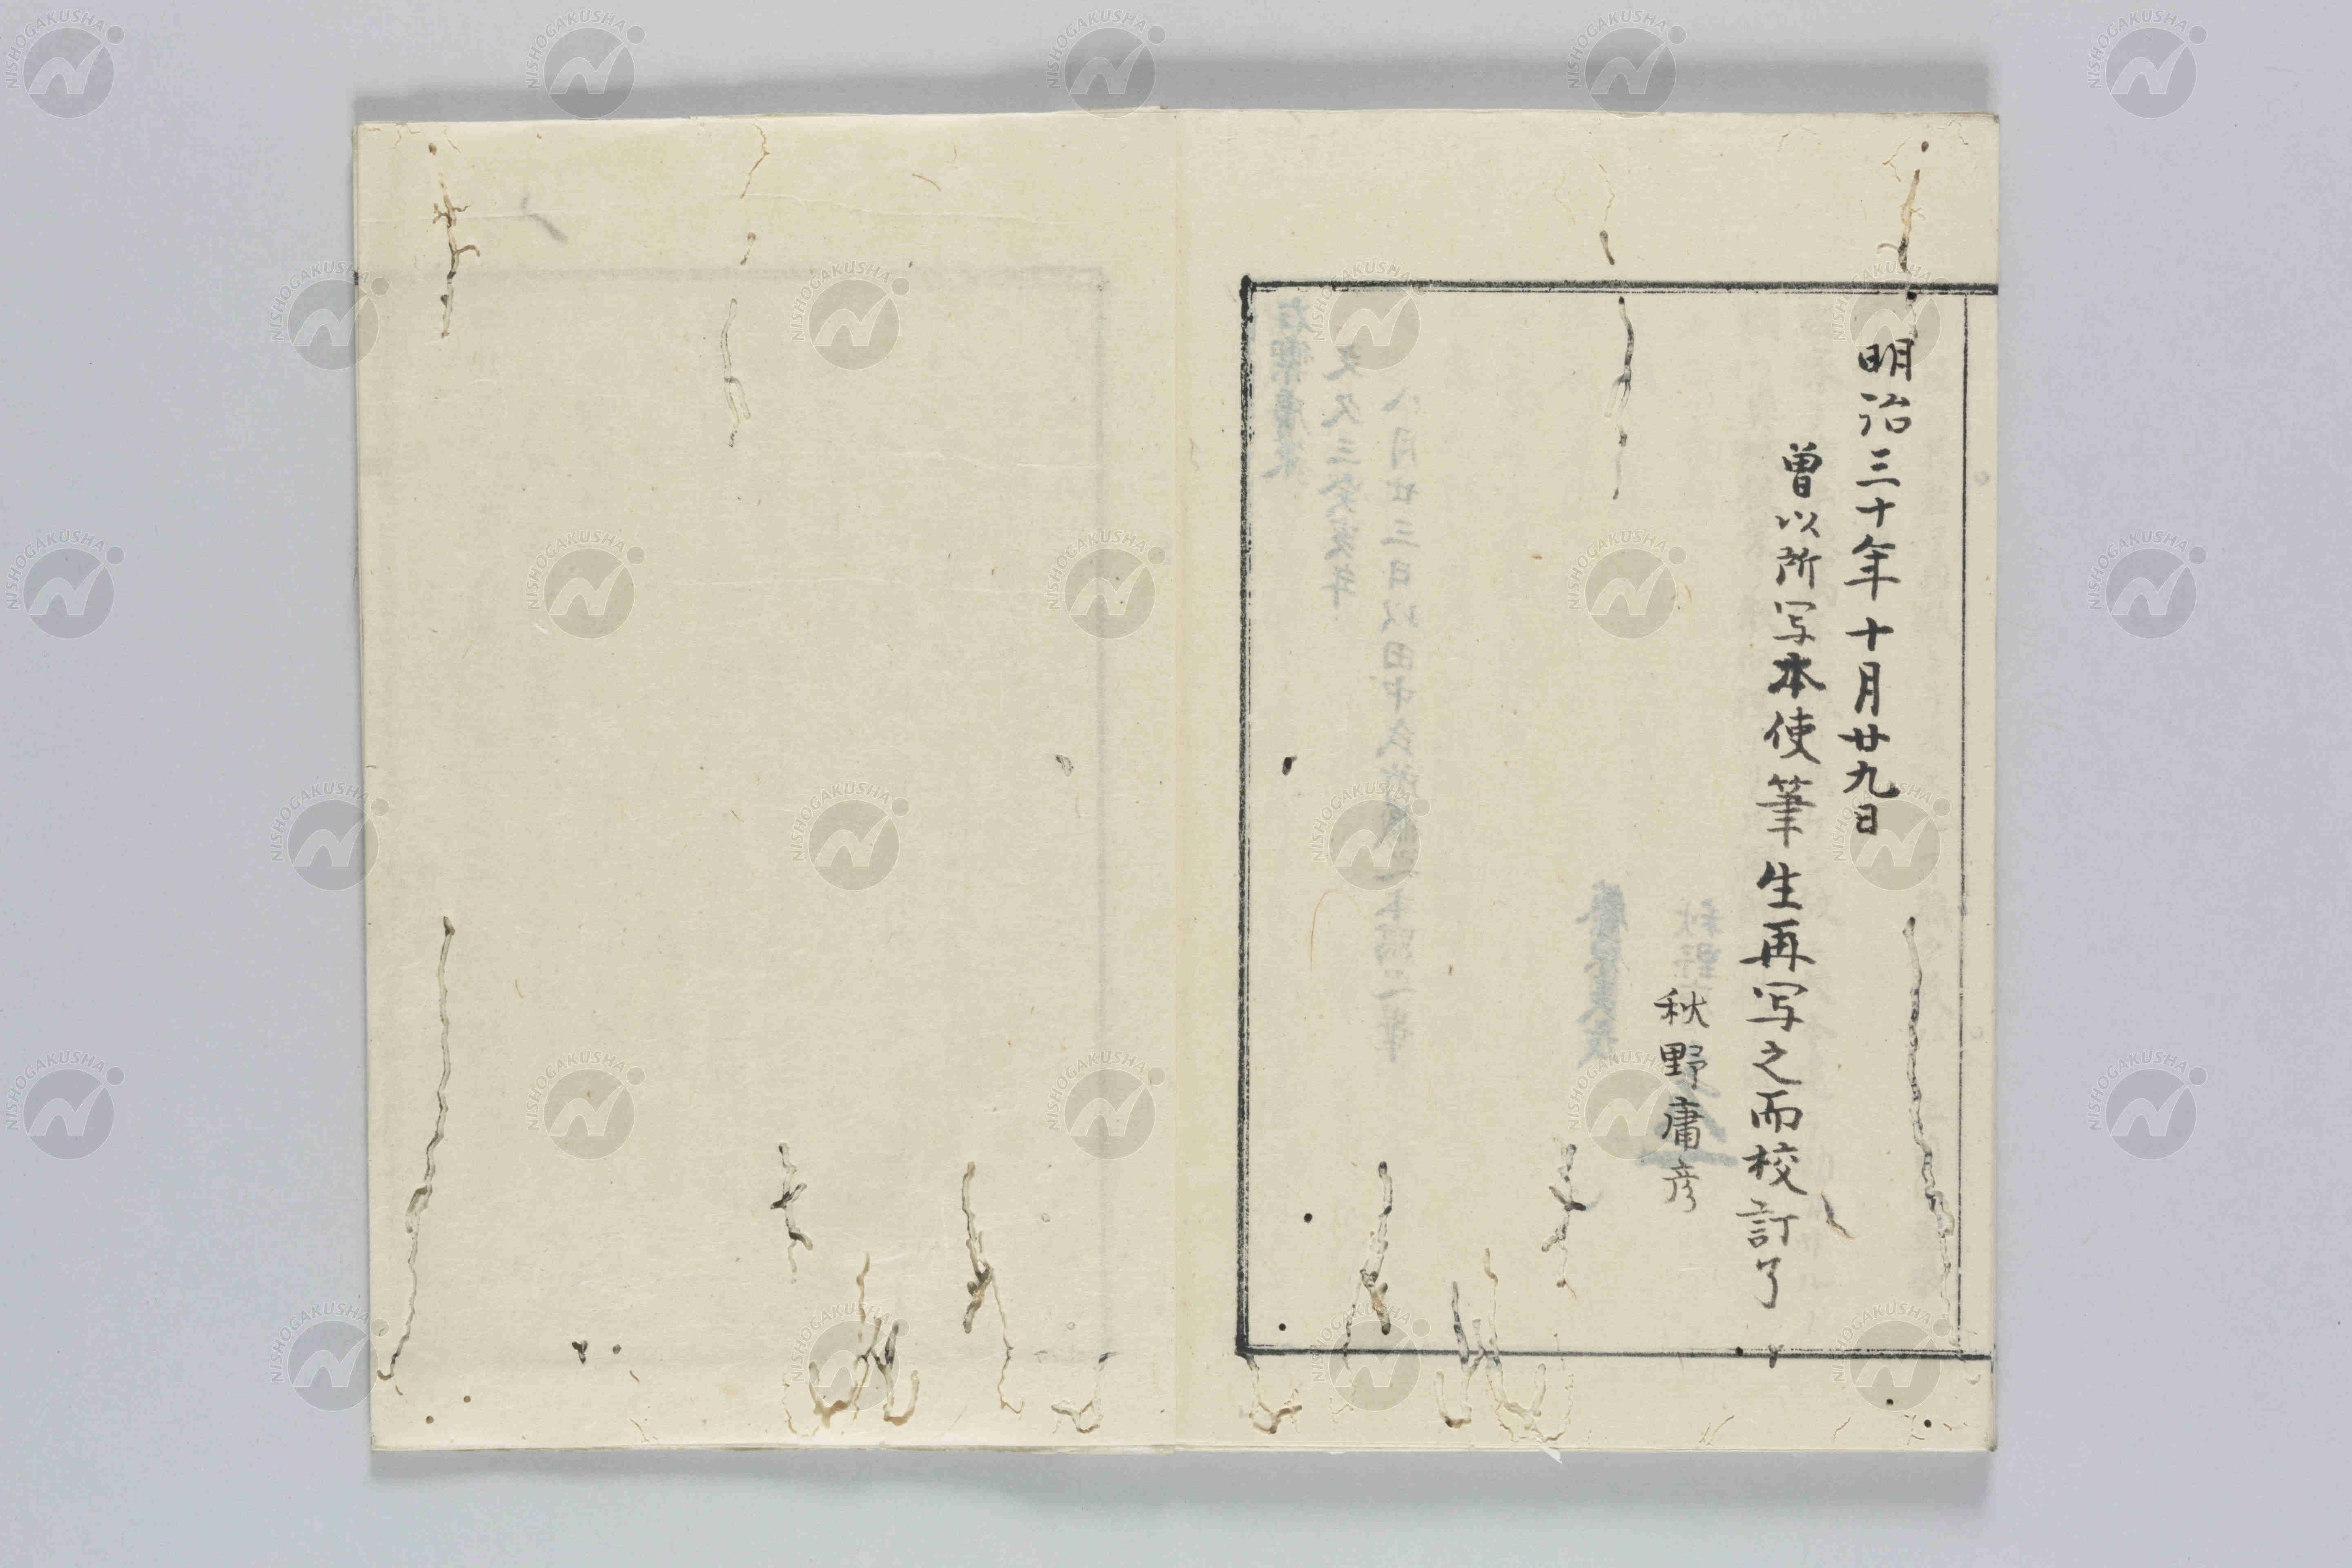 明治三十年十月廿九日
曽以所写本使筆生再写之而校訂了
秋野庸彦
NISHOGAKUSHA